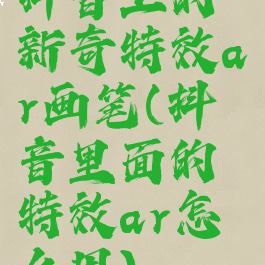 抖音上的
新奇特效a
r画笔(抖
音里面的
特效ar怎
么调)